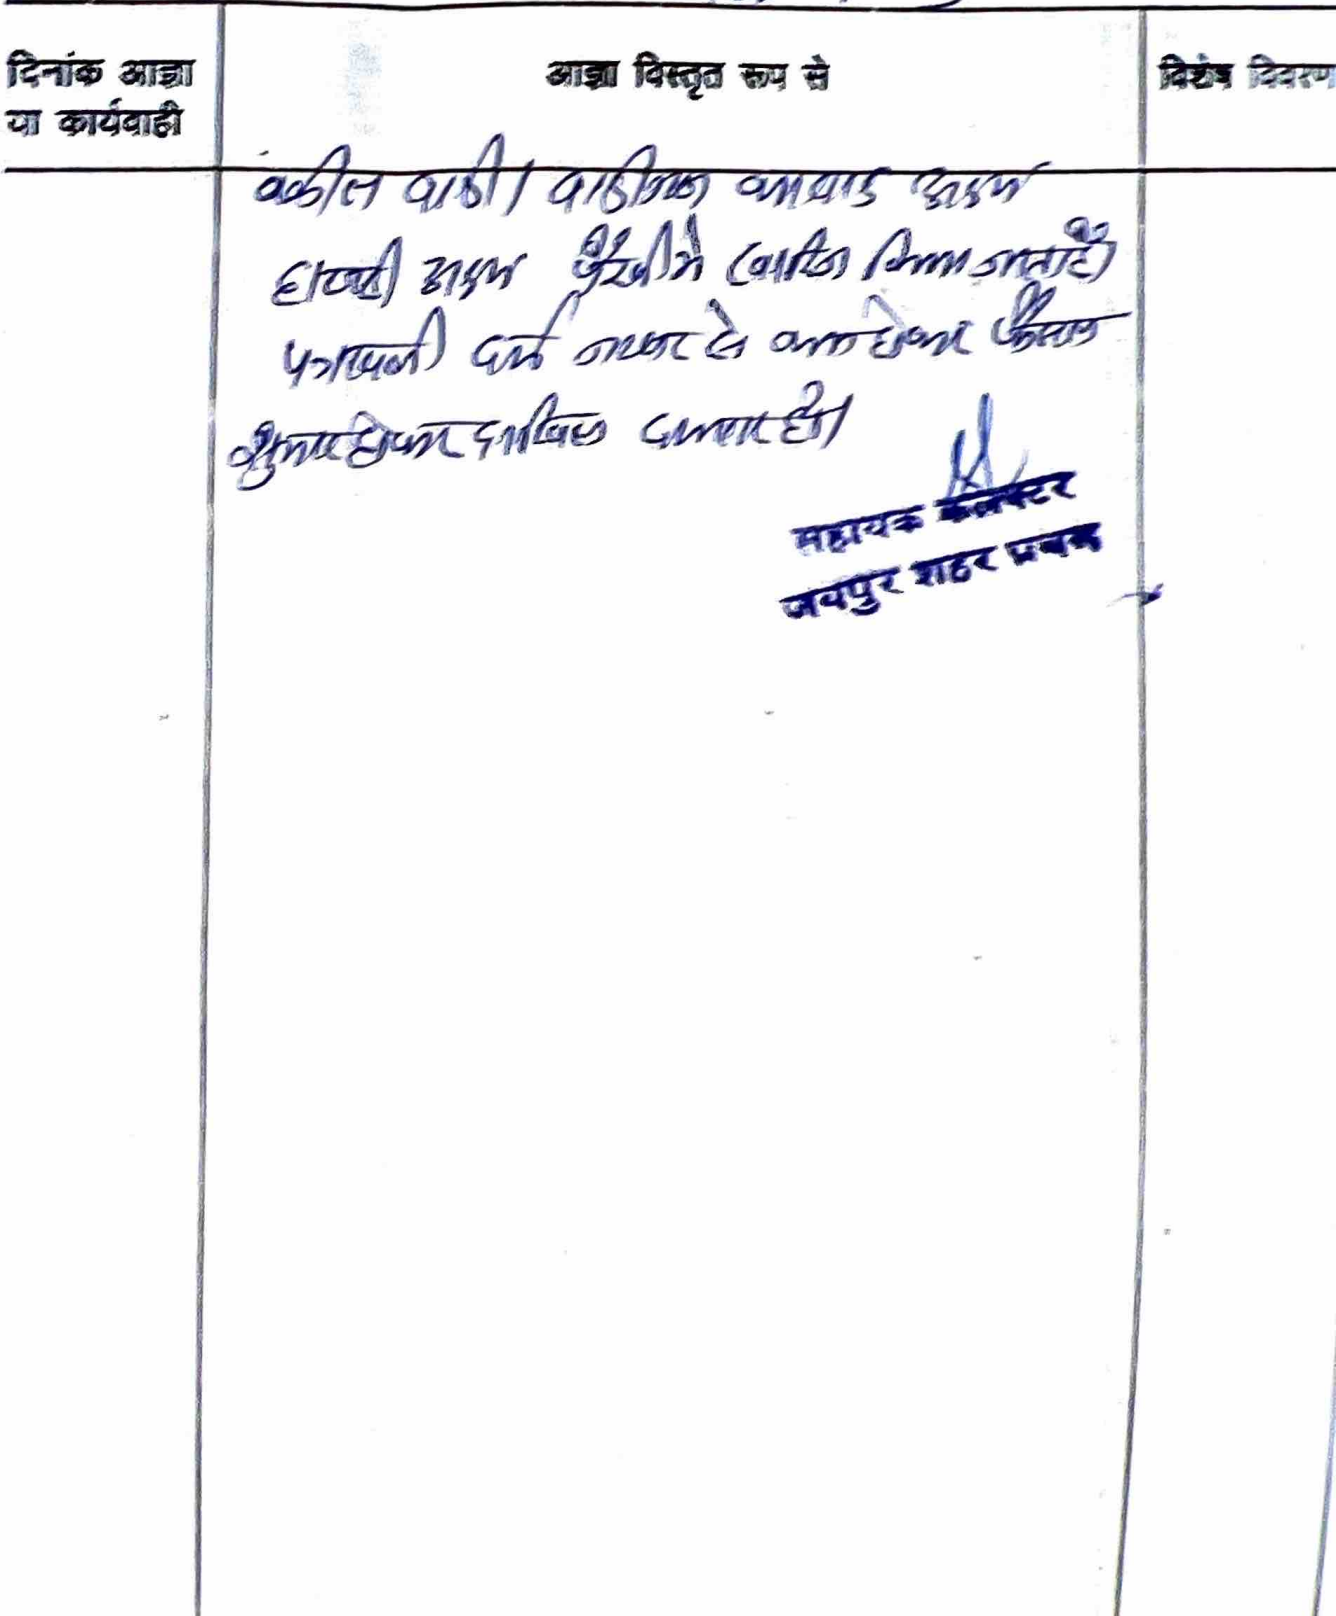 दिनांक आज्ञा
या कार्यवाही
आज्ञा विस्तृत रूप से
विशेष विवरण
वकील वादी। वादी का
अदम पैरवी में खारिज किया जाता है।
पत्रावली दर्ज नम्बर से कम होकर फैसल
शुमार होकर दाखिल दफ्तर हो।
सहायक कलक्टर
जयपुर शहर प्रथम